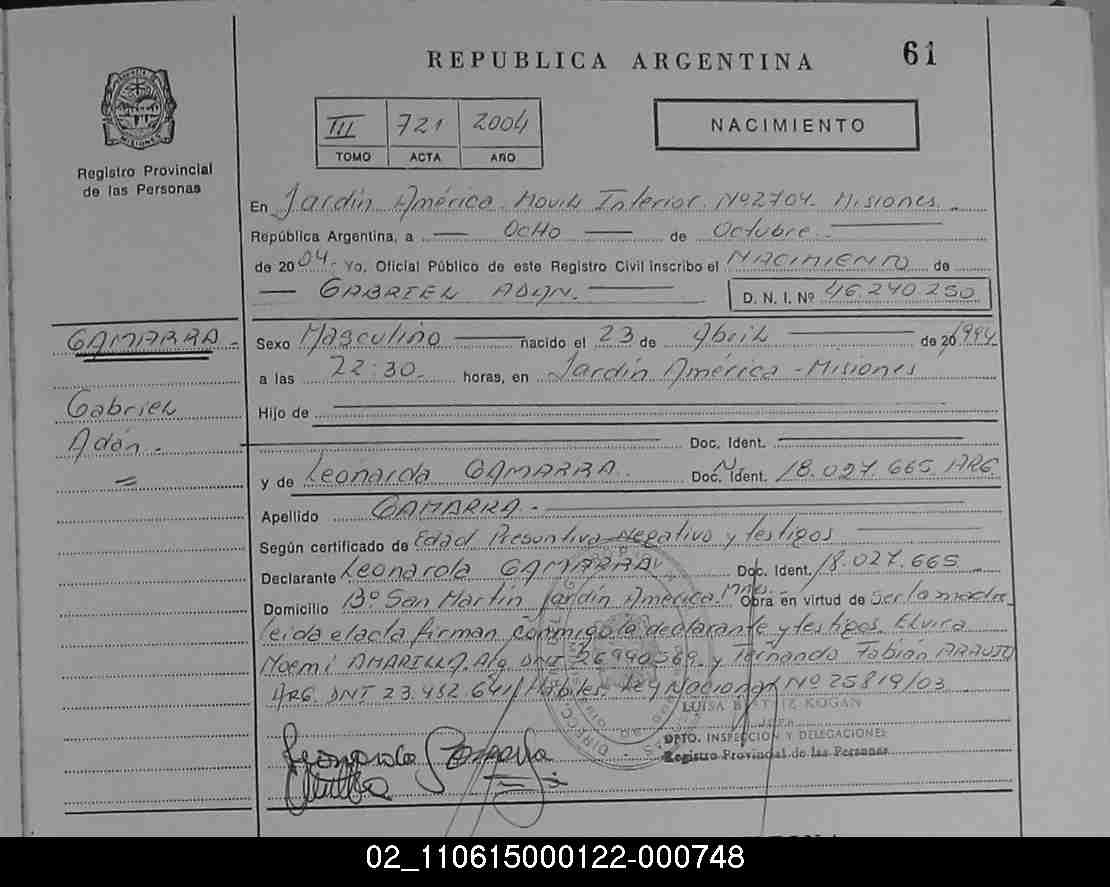 REPUBLICA ARGENTINA
61
MISIONES
Registro Provincial
de las Personas
III 721 2004
TOMO ACTA AÑO
NACIMIENTO
En Jardín América. Movil Interior. Nº2704. Misiones.
República Argentina, a — OCHO — de Octubre.
de 2004. Yo, Oficial Público de este Registro Civil inscribo el NACIMIENTO de
— GABRIEL ADAN. — D. N. I. Nº 46.240.250
GAMARRA.
Gabriel
Adán.
Sexo Masculino — nacido el 23 de Abril — de 20 1994
a las 22:30. horas, en Jardín América - Misiones
Hijo de —
— Doc. Ident. —
y de Leonarda GAMARRA. Doc. Ident. 18.027.665 ARG.
Apellido GAMARRA. —
Según certificado de Edad Presuntiva Negativo y testigos
Declarante Leonarda GAMARRA Doc. Ident. 18.027.665
Domicilio Bº San Martín Jardín América Mnes. Obra en virtud de ser la madre
leída el acta firman conmigo la declarante y testigos. Elvira
Noemí AMARILLA. Arg. DNI 26.990.569. y Fernando Fabián ARAUJO
ARG. DNI 23.482.641 Hábiles. Ley Nacional Nº 25819/03
LUISA BEATRIZ KOGAN
JEFA
DPTO. INSPECCIÓN Y DELEGACIONES
Registro Provincial de las Personas
Leonarda Gamarra
02_110615000122-000748